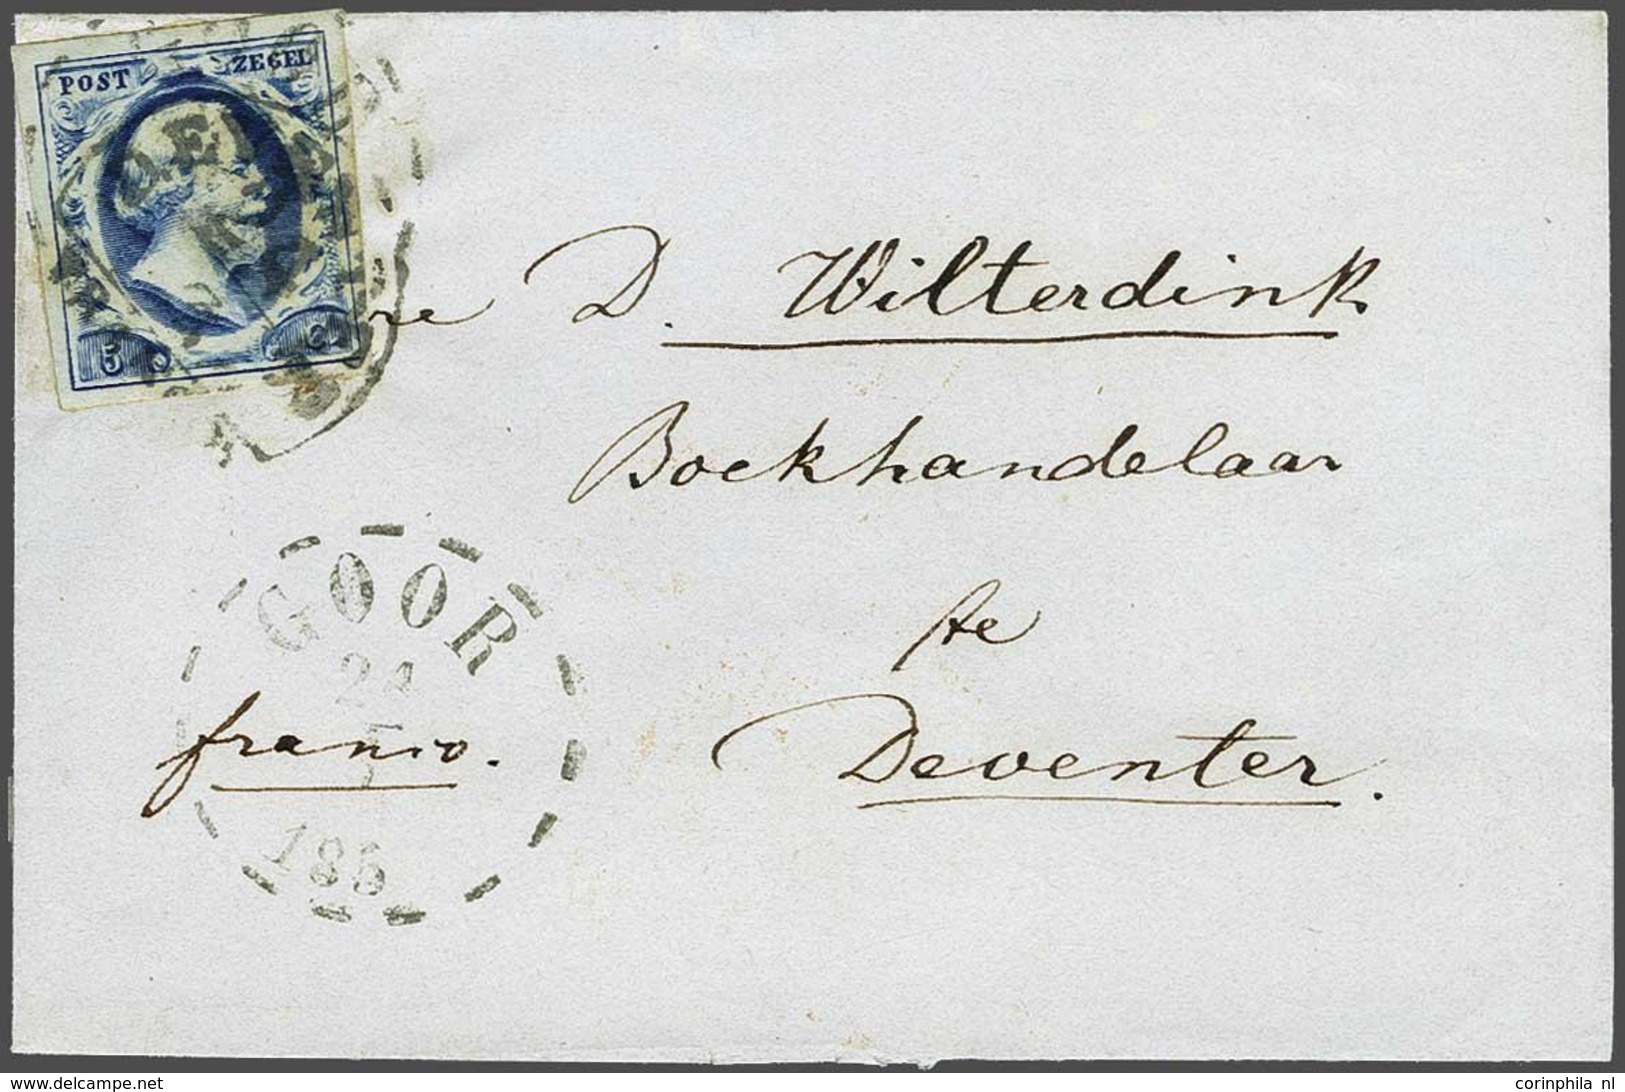 POST ZEGEL
5 C
re D. Wilterdink
Boekhandelaar
te
Deventer.
GOOR
24
5
185
franco.
www.delcampe.net
corinphila nl